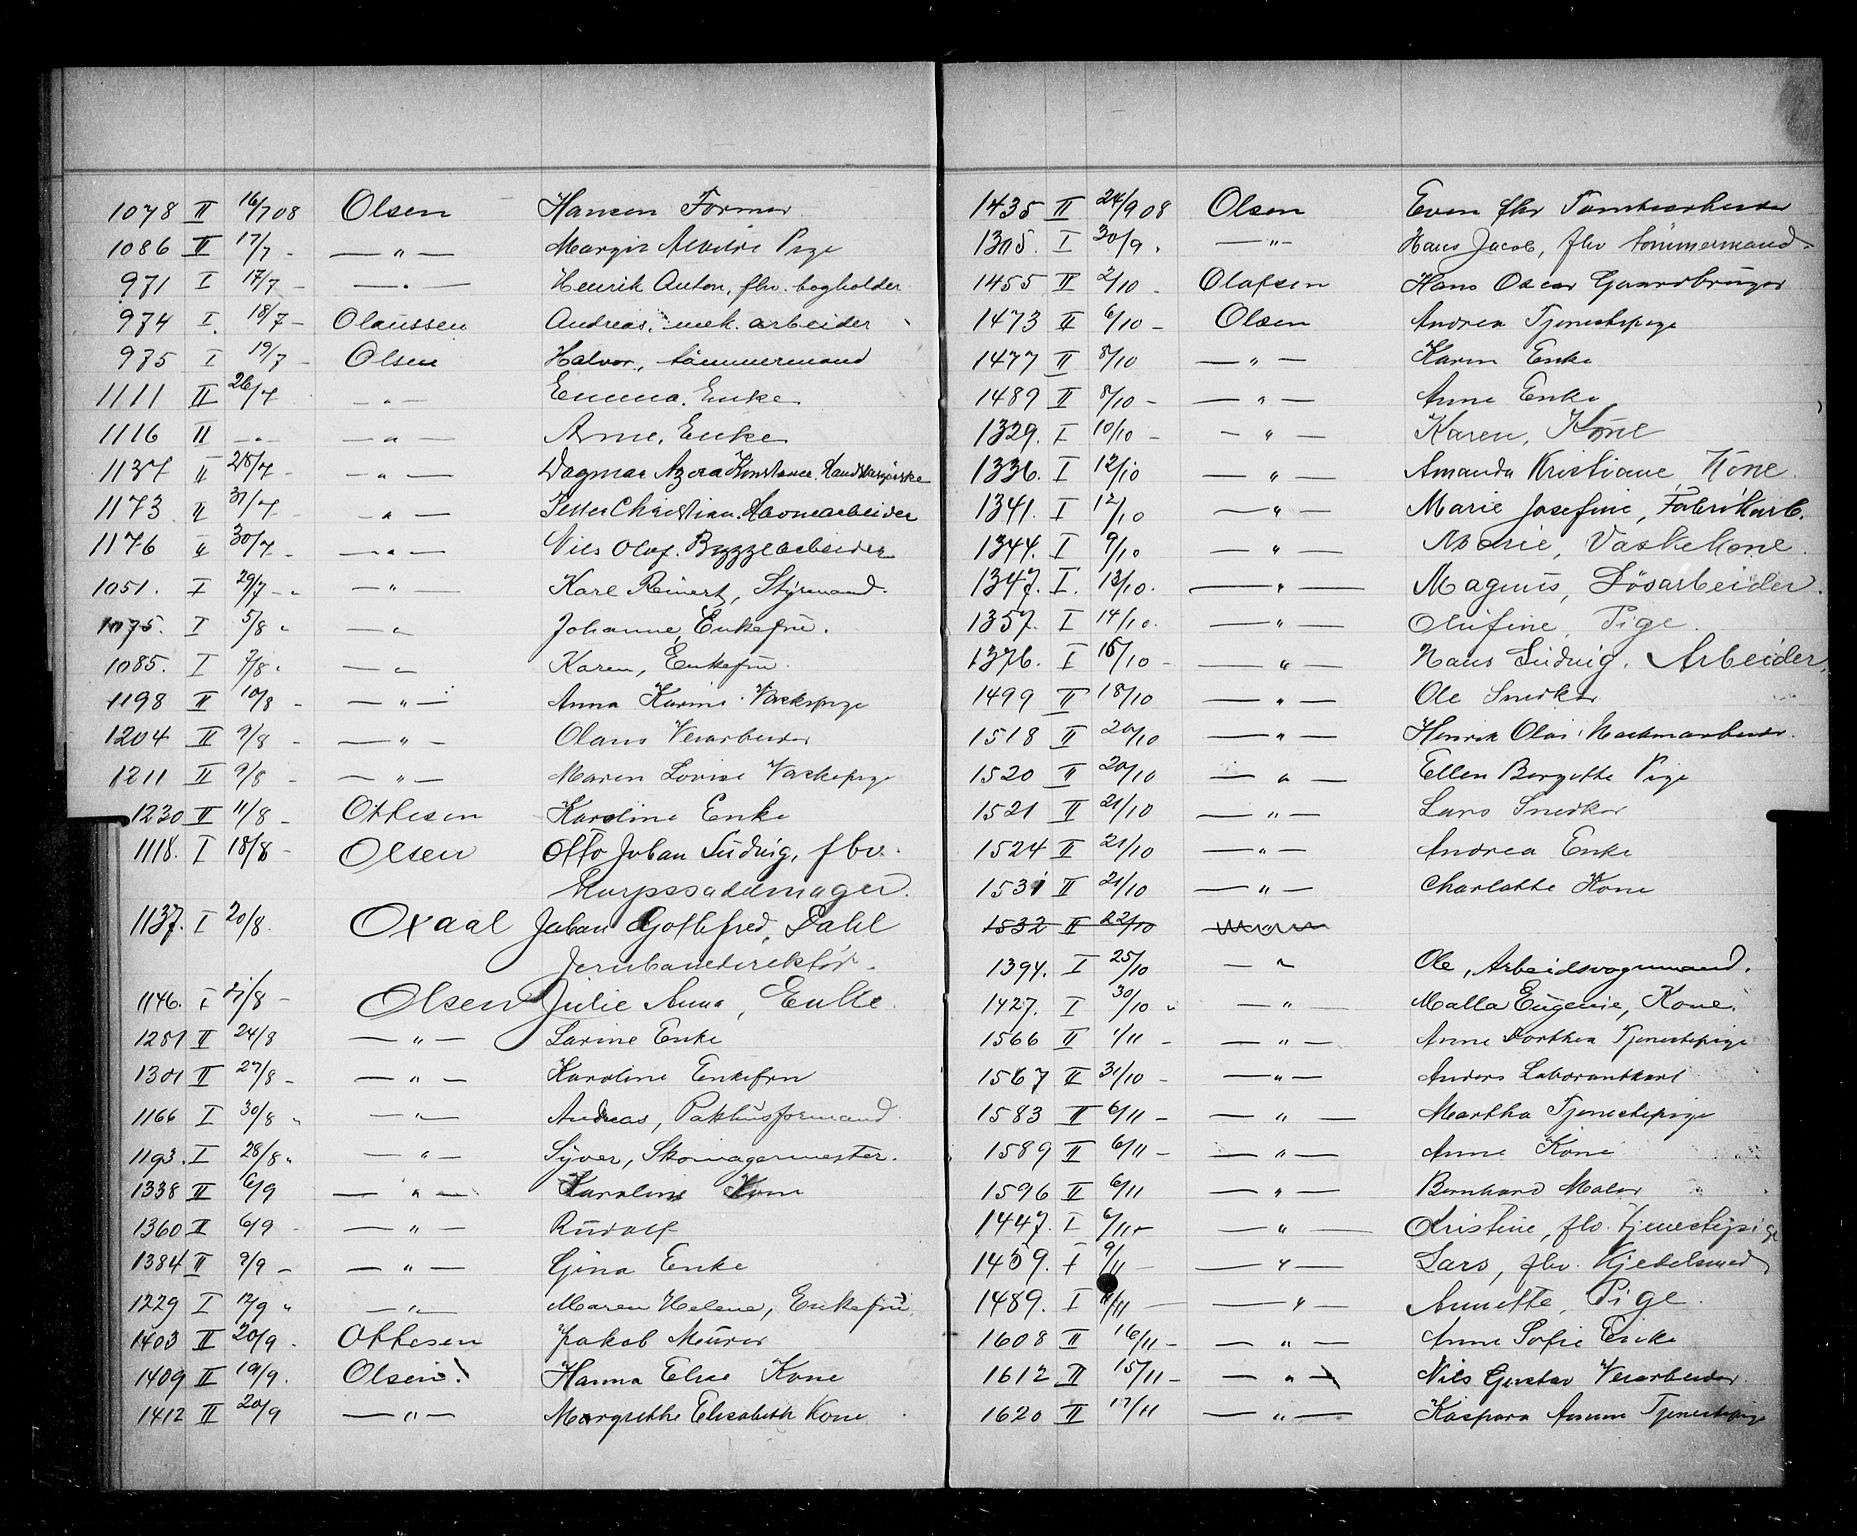 1078 II 16/7 08 Olsen Hansen Former
1086 II 17/7 - — " — Margit Alvilde Pige
971 I 17/7 - — " — Henrik Anton, fhv. bogholder
974 I. 18/7 - Olaussen Andreas, mek. arbeider
975 I 19/7 - Olsen Halvor, tømmermand
1111 II 26/7 - " - Emma, Enke
1116 II — " — — " — Arne, Enke
1137 II 28/7 - — " — Dagmar Konstance
1173 II 31/7 - — " — Christian. Havnearbeider
1176 " 30/7 - — " — Nils Olaf. Bryggearbeider
1051. I 29/7 - " — " Karl Reinert, Styrmand.
1075. I 5/8 " — " Johanne, Enkefru.
1085. I 7/8 " — " Karen, Enkefru.
1198 II 10/8 - — " — Anna Karine Vaskepige
1204 II 9/8 - — " — Olaus Veiarbeider
1211 II 9/8 - — " — Maren Lovise Vaskepige
1230 II 11/8 - Ottesen Karoline Enke
1118. I 18/8 - Olsen Otto Johan Ludvig, fhv.
Korpssadelmager.
1137. I 20/8. Oxaal Johan Gottfred, Dahl
Jernbanedirektør.
1146. I 21/8 - Olsen Julie Anna, Enke.
1251 II 24/8 — " — Larine Enke
1301 II 27/8 - — " — Karoline Enkefru
1166 I 30/8 " — " — Andreas, Pakhusformand
1193. I 28/8 " — " — Syver, Skomagermester.
1338 II 6/9 — " — Karoline Kone
1360 II 6/9 - — " — Rudolf
1384 II 9/9 - — " — Gina Enke
1229 I 12/9 " — " — Maren Helene, Enkefru
1403 II 20/9 - Ottesen Jakob Murer
1409 II 19/9. Olsen Hanna Elise Kone
1412 II 20/9 — " — Margrethe Elisabeth Kone
1435 II 24/9 08 Olsen Even fhv Tomtearbeider
1305. I 30/9. — " — Hans Jacob, fhv tømmermand
1455 II 2/10 - Olafsen Hans Oscar Gaardbruger
1473 II 6/10 - Olsen Andrea Tjenestepige
1477 II 8/10 — " — Karen Enke
1489 II 8/10 - — " — Anne Enke
1329. I 10/10 - — " — Karen, Kone
1336. I 12/10 — " — Amanda Kristiane, Kone.
1341. I 12/10 — " — Marie Josefine, Fabrikarb.
1344. I 9/10 — " — Marie, Vaskekone.
1347. I. 13/10. — " — Magnus, Løsarbeider.
1357. I 14/10. — " — Olufine, Pige.
1376. I 15/10 - — " — Hans Ludvig. Arbeider,
1499 II 18/10 — " — Ole Snedker
1518 II 20/10 — " — Henrik Olai
1520 II 20/10 — " — Ellen Bergitte Pige
1521 II 21/10 — " — Lars Snedker
1524 II 21/10 — " — Andrea Enke
1531 II 21/10 — " — Charlotte Kone
1532 II 22/10
1394. I 25/10 — " Ole, Arbeidsvognmand.
1427. I 30/10 " — " — Malla Eugenie, Kone.
1566 II 1/11 - — " — Anne Dorthea Tjenestepige
1567 II 31/10 - — " — Anders Laborantkarl
1583 II 6/11 - — " — Martha Tjenestepige
1589 II 6/11 - — " — Anne Kone
1596 II 6/11 — " — Bernhard Maler
1447. I 6/11 - — " — Kristine, fhv. tjenestepige
1459. I 9/11 - — " — Lars, fhv. Kjedelsmed
1489. I /11 — — " — Annette, Pige.
1608 II 16/11 - — " — Anne Sofie Enke
1612 II 15/11 - — " — Nils Gustav Veiarbeider
1620 II 17/11 — " — Kaspara Tjenestepige